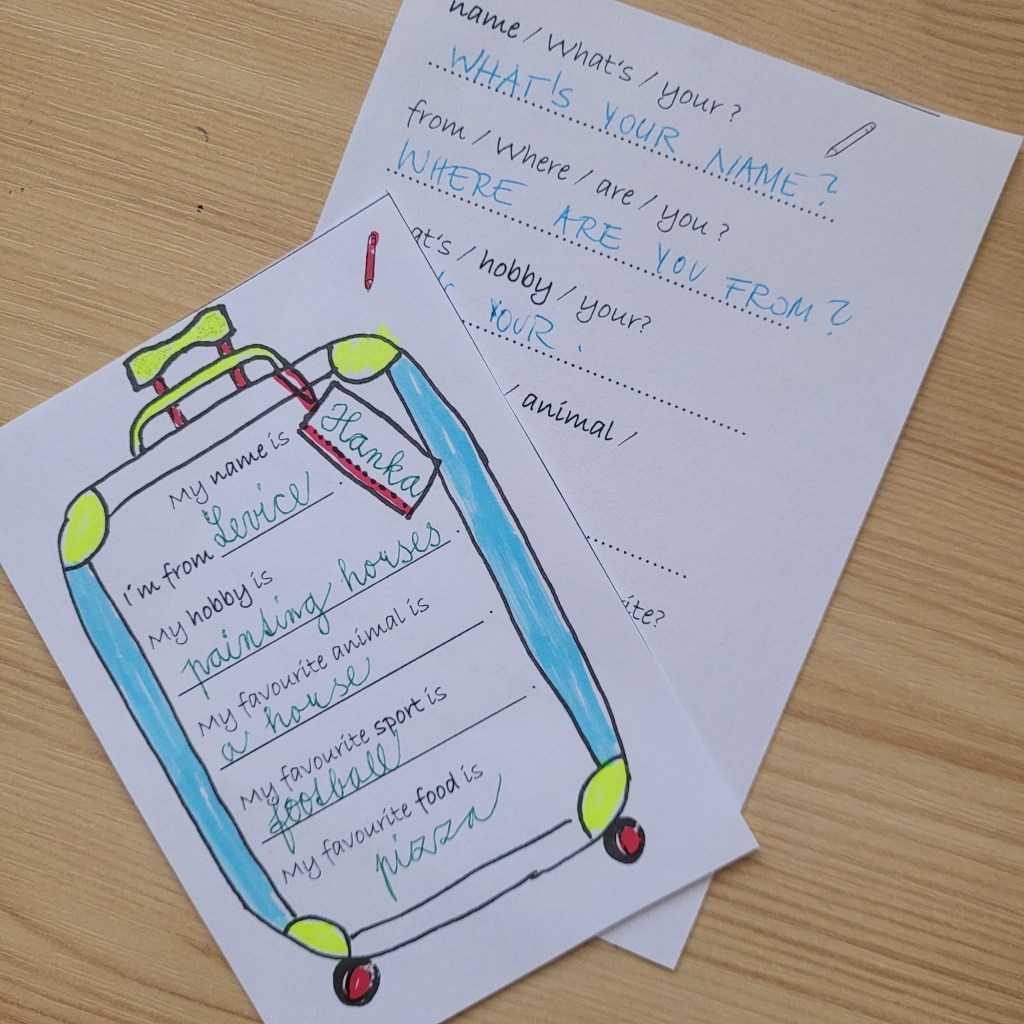 name / What's / your?
WHAT'S YOUR NAME?
from / Where / are / you?
WHERE ARE YOU FROM?
at's / hobby / your?
YOUR.
/ animal /
ite?
Hanka
My name is
I'm from Levice.
My hobby is
painting horses.
My favourite animal is
a horse.
My favourite sport is
football.
My favourite food is
pizza